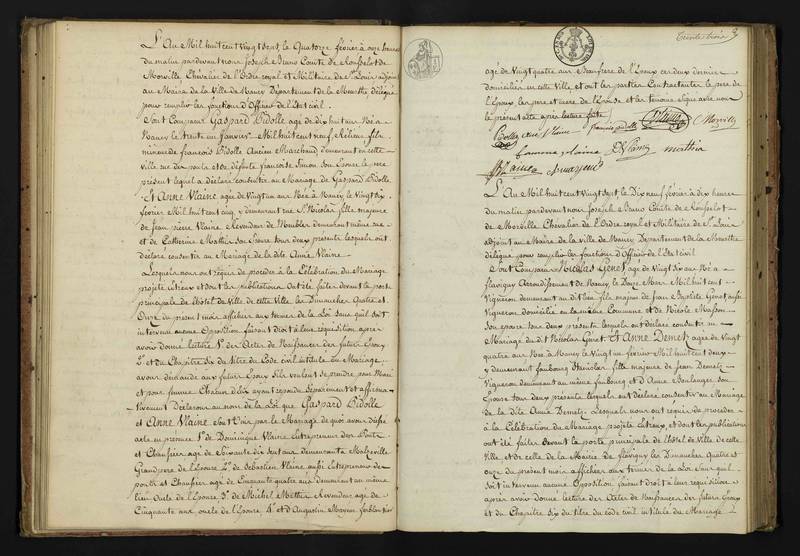 L'An Mil huit cent vingt sept, le Quatorze février à onze heures
du matin pardevant nous Joseph Bruno Comte de Rousselot de
Morville Chevalier de l'Ordre royal et Militaire de St Louis adjoint
au Maire de la Ville de Nancy Département de la Meurthe délégué
pour remplir les fonctions d'Officier de l'Etat civil.
Sont Comparus Gaspard Bidolle agé de dix huit ans Né à
Nancy le trente un Janvier Mil huit cent neuf, fils
mineur de françois Bidolle Ancien Marchand demeurant en cette
Ville et de défunte françoise Simon son Epouse le père
présent lequel a déclaré consentir au Mariage de Gaspard Bidolle
Et Anne Vlaine agée de Vingt un ans Née à Nancy le Vingt six
février Mil huit cent cinq y demeurant rue St Nicolas fille majeure
de Jean pierre Vlaine Revendeur de Meubles demeurant même rue
et de Catherine Mathis son Epouse tous deux présents lesquels ont
declaré consentir au Mariage de la dite Anne Vlaine
Lesquels nous ont requis de procéder à la Célébration du Mariage
projeté entre eux et dont les publications Ont été faites devant la porte
principale de l'hôtel de Ville de cette Ville les Dimanches Quatre et
Onze du présent mois affichées aux termes de la Loi sans qu'il soit
intervenu aucune Opposition faisant droit à leur réquisition après
avoir donné lecture 1° des Actes de Naissances des futurs Epoux
2° et du Chapitre Six du titre du Code civil intitulé du Mariage
avons demandé aux futurs Epoux s'ils veulent se prendre pour Mari
et pour femme Chacun d'eux ayant repondu Séparément et affirma-
tivement Déclarons au nom de la Loi que Gaspard Bidolle
et Anne Vlaine sont Unis par le Mariage de quoi avons dressé
acte en présence 1° de Dominique Vlaine Entrepreneur des Ponts
et Chaussées agé de Soixante dix huit ans demeurant à Malzéville
Grandpère de l'Epouse 2° de Sebastien Vlaine aussi Entrepreneur des
ponts et Chaussées agé de Cinquante quatre ans demeurant au même
lieu Oncle de l'Epouse 3° de Michel Mathis Revendeur agé de
Cinquante ans oncle de l'Epouse 4° et d'Augustin Mayeur ferblantier
trente trois
agé de Vingt quatre ans Beaufrere de l'Epoux ces deux derniers
domiciliés en cette Ville et ont les parties Contractantes le père de
l'Epoux les père et mere de l'Epouse et les témoins signé avec nous
le présent acte après lecture faite
Bidolle Anne Vlaine françois bidolle Vlaine Morville
Vlaine mathis
Vlaine
L'An Mil huit cent Vingt sept le Dix neuf février à Dix heures
du matin pardevant nous Joseph Bruno Comte de Rousselot
de Morville Chevalier de l'Ordre royal et Militaire de St Louis
adjoint au Maire de la Ville de Nancy Departement de la Meurthe
délégué pour remplir les fonctions d'Officier de l'Etat civil
Sont Comparus Nicolas Genot agé de Vingt six ans Né à
flavigny Arrondissement de Nancy le Douze Mars Mil huit cent
Vigneron demeurant au dit lieu fils majeur de Jean Baptiste Genot aussi
Vigneron domicilié en la même Commune et de Nicole Masson
Son epouse tous deux présents lesquels ont déclaré consentir au
Mariage du dit Nicolas Genot. Et Anne Demetz agée de Vingt
quatre ans Née à Nancy le Vingt un février Mil huit cent deux
y demeurant faubourg Stanislas fille majeure de Jean Demetz
Vigneron demeurant au même faubourg et d'Anne Boulanger son
Epouse tous deux présents lesquels ont déclaré consentir au Mariage
de la dite Anne Demetz Lesquels nous ont requis de procéder
à la Célébration du Mariage projeté entr'eux et dont les publications
ont été faites devant la porte principale de l'hôtel de Ville de cette
Ville et de celle de la Mairie de flavigny les Dimanches Quatre et
onze du présent mois affichées aux termes de la Loi sans qu'il
soit intervenu aucune Opposition faisant droit à leur réquisition
après avoir donné lecture des Actes de Naissances des futurs Epoux
et du Chapitre Six du titre du Code civil intitulé du Mariage